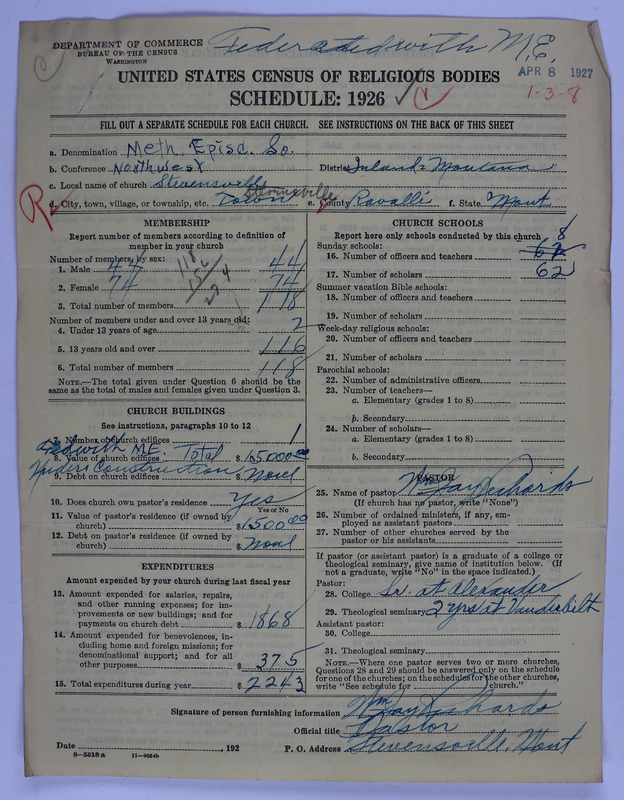 DEPARTMENT OF COMMERCE
BUREAU OF THE CENSUS
WASHINGTON
Federated with M.E.
APR 8 1927
1-3-8
UNITED STATES CENSUS OF RELIGIOUS BODIES
SCHEDULE: 1926
FILL OUT A SEPARATE SCHEDULE FOR EACH CHURCH. SEE INSTRUCTIONS ON THE BACK OF THIS SHEET
a. Denomination Meth. Episc. So.
b. Conference Northwest District Inland-Montana
c. Local name of church Stevensville
d. City, town, village, or township, etc. Town Stevensville e. County Ravalli f. State Mont
R
MEMBERSHIP
Report number of members according to definition of
member in your church
Number of members, by sex:
1. Male 44 44
2. Female 74 74
3. Total number of members 118
Number of members under and over 13 years old:
4. Under 13 years of age 2
5. 13 years old and over 116
6. Total number of members 118
NOTE.—The total given under Question 6 should be the
same as the total of males and females given under Question 3.
CHURCH BUILDINGS
See instructions, paragraphs 10 to 12
7. Number of church edifices 1
Fed with M.E. Total
8. Value of church edifices $15000.00
Under Construction
9. Debt on church edifices $None
10. Does church own pastor's residence Yes
Yes or No
11. Value of pastor's residence (if owned by
church) $1500.00
12. Debt on pastor's residence (if owned by
church) $None
EXPENDITURES
Amount expended by your church during last fiscal year
13. Amount expended for salaries, repairs,
and other running expenses; for im-
provements or new buildings; and for
payments on church debt $1868
14. Amount expended for benevolences, in-
cluding home and foreign missions; for
denominational support; and for all
other purposes 375
15. Total expenditures during year $2243
CHURCH SCHOOLS
Report here only schools conducted by this church
Sunday schools: 8
16. Number of officers and teachers 62
17. Number of scholars 62
Summer vacation Bible schools:
18. Number of officers and teachers
19. Number of scholars
Week-day religious schools:
20. Number of officers and teachers
21. Number of scholars
Parochial schools:
22. Number of administrative officers
23. Number of teachers—
a. Elementary (grades 1 to 8)
b. Secondary
24. Number of scholars—
a. Elementary (grades 1 to 8)
b. Secondary
PASTOR
25. Name of pastor Wm Jay Richards
(If church has no pastor, write "None")
26. Number of ordained ministers, if any, em-
ployed as assistant pastors
27. Number of other churches served by the
pastor or his assistants
If pastor (or assistant pastor) is a graduate of a college or
theological seminary, give name of institution below. (If
not a graduate, write "No" in the space indicated.)
Pastor:
28. College Jr. at Alexander
29. Theological seminary 2 yrs at Vanderbilt
Assistant pastor:
30. College
31. Theological seminary
NOTE.—Where one pastor serves two or more churches,
Questions 28 and 29 should be answered only on the schedule
for one of the churches; on the schedules for the other churches,
write "See schedule for church."
Signature of person furnishing information Wm Jay Richards
Official title Pastor
Date , 192 P. O. Address Stevensville, Mont
8—5518 a 11—9084b